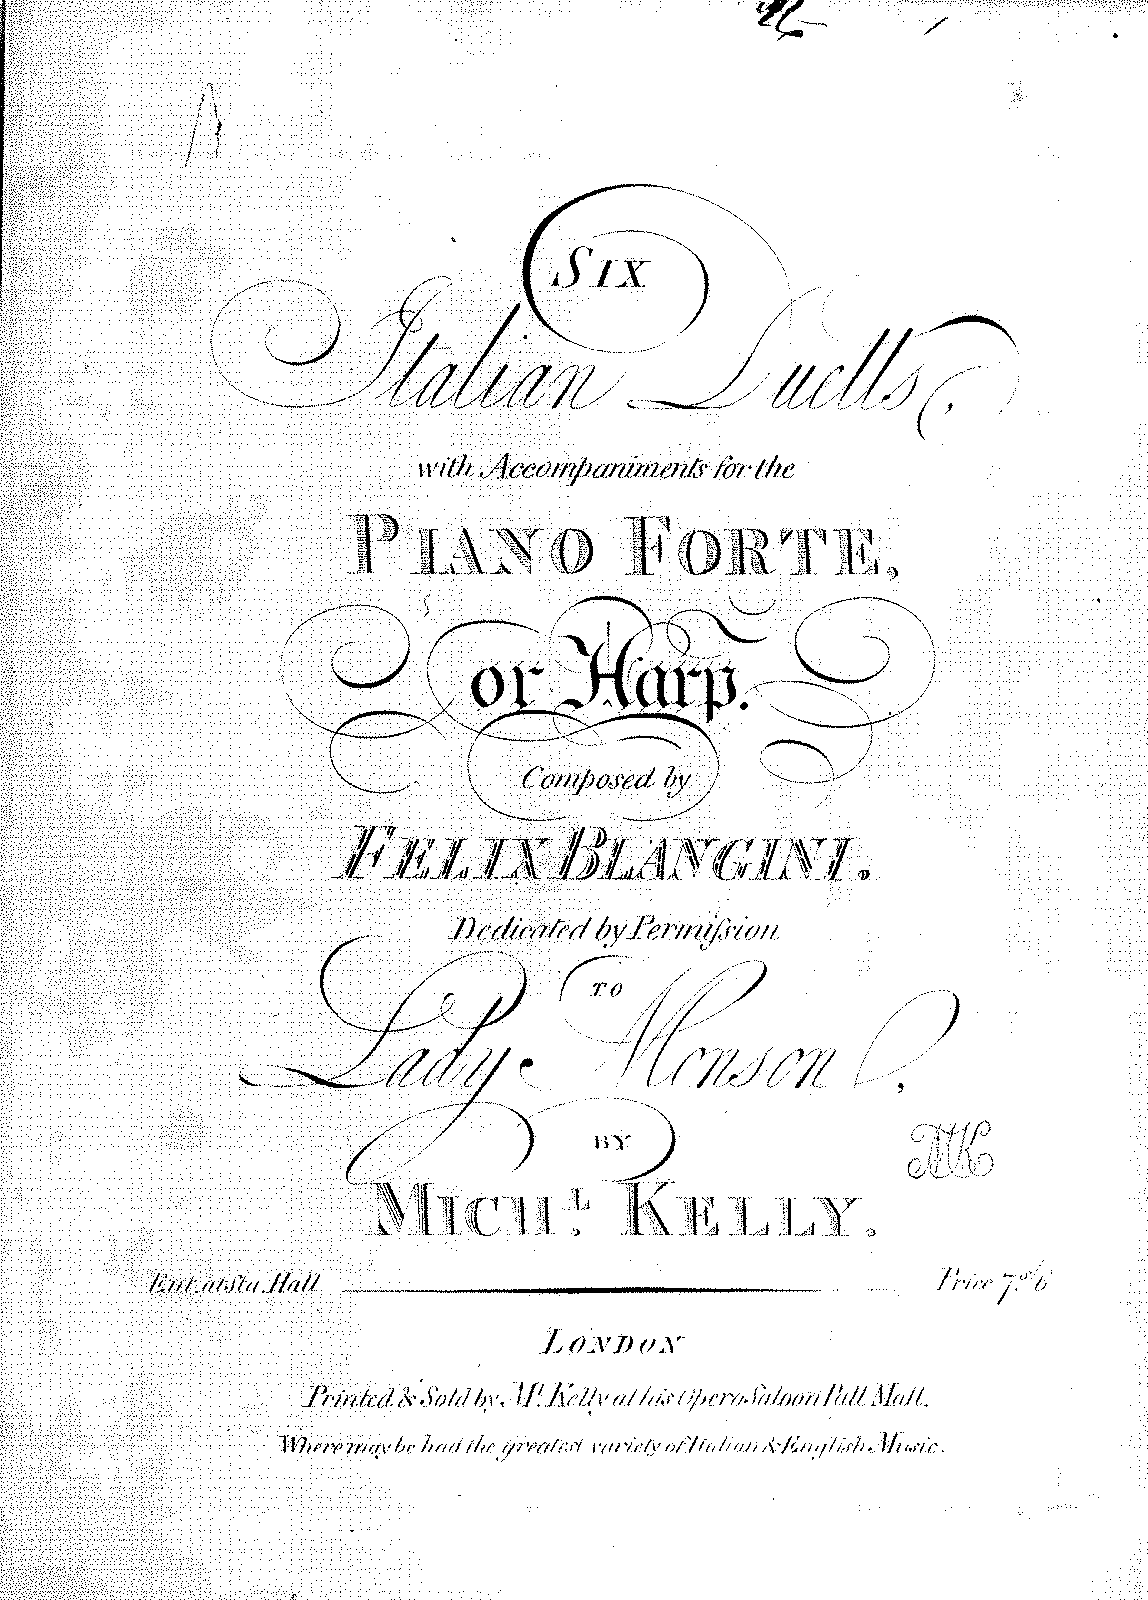 SIX
Italian Duetts,
with Accompaniments for the
PIANO FORTE,
or Harp.
Composed by
FELIX BLANGINI.
Dedicated by Permiſsion
TO
Lady Monson,
BY
MICHL. KELLY.
MK
Ent. at Sta. Hall Price 7s. 6d
LONDON
Printed & Sold by Mr. Kelly at his Opera Saloon Pall Mall.
Where may be had the greatest variety of Italian & English Music.